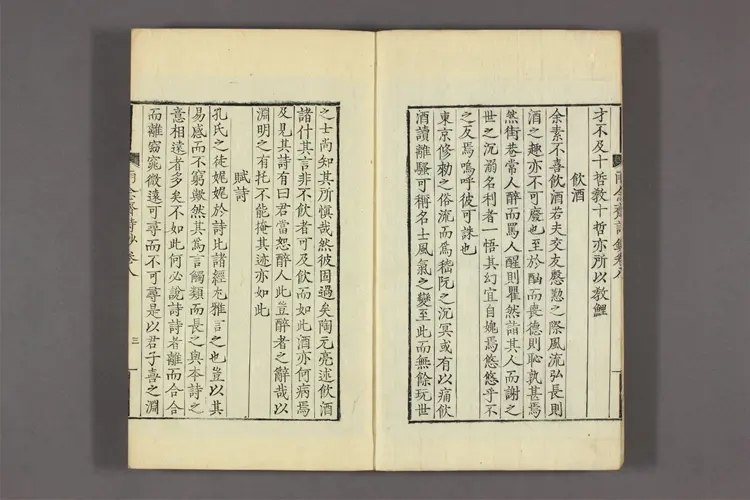 才不及十哲教十哲亦所以教鯉
飲酒
余素不喜飲酒若夫交友慇懃之際風流弘長則
酒之趣亦不可廢也至於酗而喪德則恥孰甚焉
然街巷常人醉而罵人醒則瞿然詣其人而謝之
世之沉溺名利者一悟其幻宜自媿焉悠悠乎不
之反焉嗚呼彼可誅也
東京修勅之俗流而爲嵇阮之沉冥或有以痛飲
酒讀離騷可稱名士風氣之變至此而無餘玩世
之士尚知其所愼哉然彼固過矣陶元亮述飲酒
諸什其言非不飲者可及飲而如此酒亦何病焉
及見其詩有曰君當恕醉人此豈醉者之辭哉以
淵明之有托不能掩其迹亦如此
賦詩
孔氏之徒娓娓於詩比諸經尤雅言之也豈以其
易感而不窮歟然其爲言觸類而長之與本詩之
意相遠者多矣不如此何必說詩詩者離而合合
而離窈窕微遠可尋而不可尋是以君子喜之淵
卷八
三